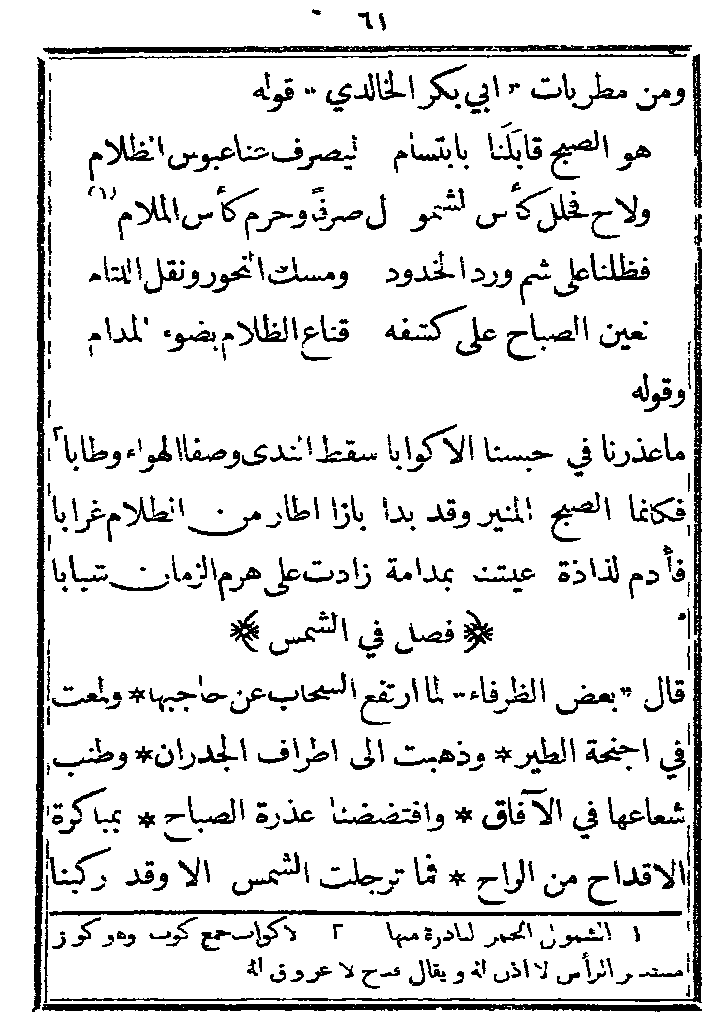 ٦١
ومن مطربات « ابي بكر الخالدي » قوله
هو الصبح قابَلَنا بابتسام ليصرف عنا عبوس الظلام
ولاح فحلل كأس الشمو ل صرفًا وحرم كأس الملام (١)
فظلنا على شم ورد الخدود ومسك النحور ونقل اللثام
نعين الصباح على كشفه قناع الظلام بضوء المدام
وقوله
ما عذرنا في حبسنا الاكوابا سقط الندى وصفا الهواء وطابا ٢
فكانما الصبح المنير وقد بدا بازا اطار من الظلام غرابا
فأدم لذاذة عيشنا بمدامة زادت على هرم الزمان شبابا
﴿ فصل في الشمس ﴾
قال « بعض الظرفاء » لما ارتفع السحاب عن حاجبها * ولمعت
في اجنحة الطير * وذهبت الى اطراف الجدران * وطنب
شعاعها في الآفاق * وافتضضنا عذرة الصباح * بمباكرة
الاقداح من الراح * فما ترجلت الشمس الا وقد ركبنا
١ الشمول الخمر لبادرة منها ٢ لاكواب جمع كوب وهو كوز
مستدير الرأس لا اذن له ويقال قدح لا عروة له